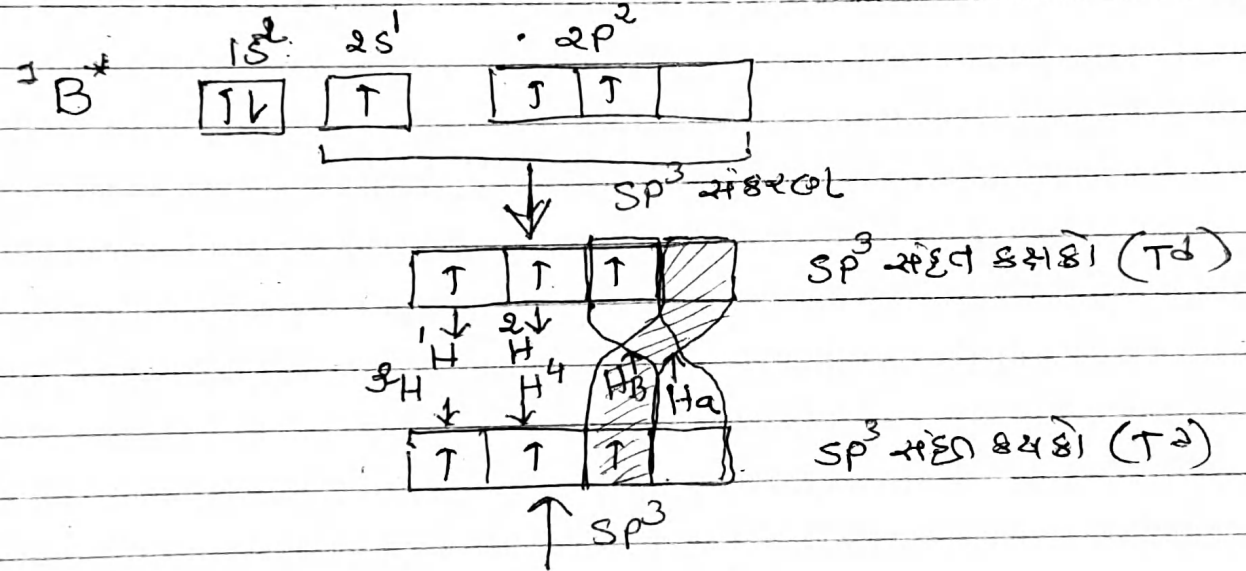 1s² 2s¹ 2p²
¹B* ↑↓ ↑ ↑ ↑
SP³ સંકરણ
↑ ↑ ↑ SP³ સંકૃત કક્ષકો (Td)
¹H ²H
³H H⁴ HB Ha
↑ ↑ ↑ SP³ સંકૃત કક્ષકો (Td)
↑ SP³